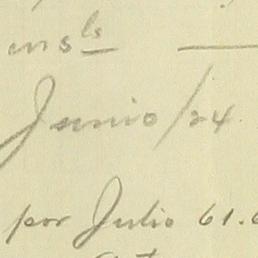 en 5 ls
Junio/24.
por Julio 61.6